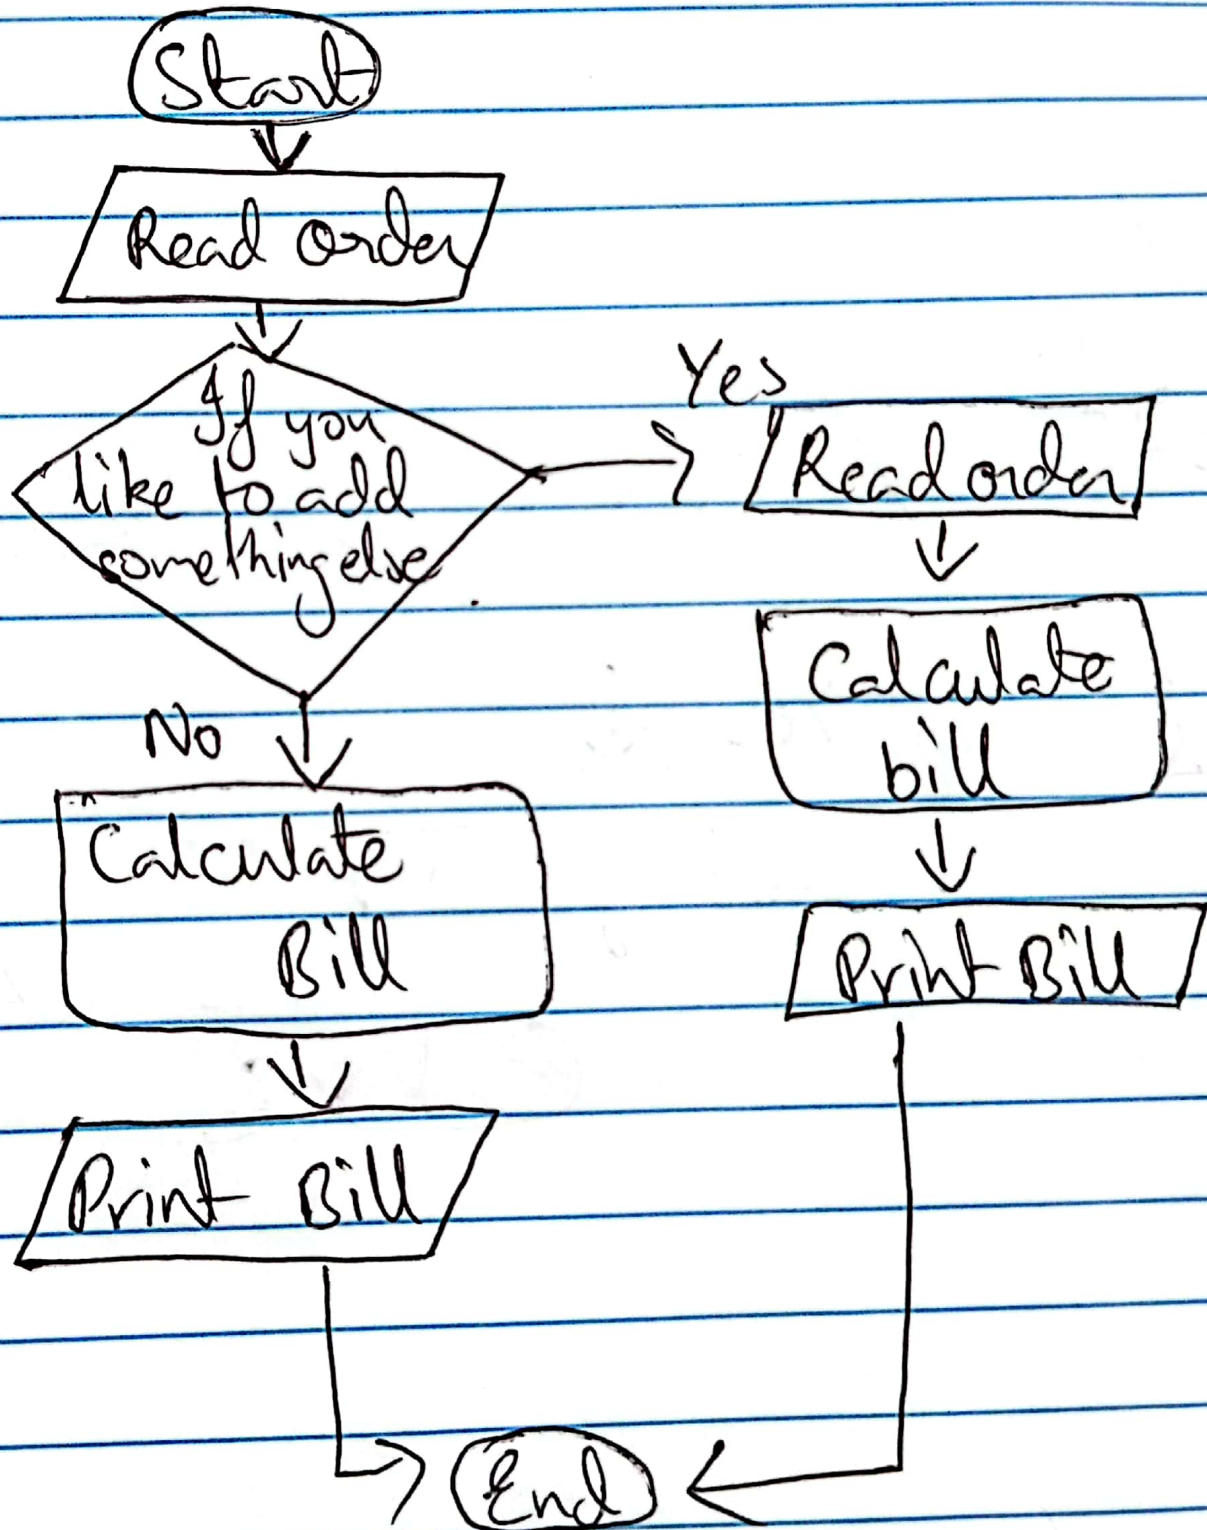 Start
Read order
If you
like to add
something else
Yes
Read order
Calculate
bill
Print Bill
No
Calculate
Bill
Print Bill
End